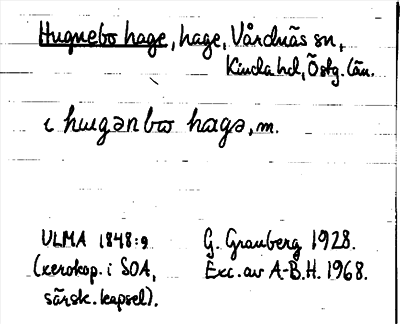 Hugnebo hage, hage, Vårdnäs sn,
Kinda hd, Östg. län.
i hɯgənbɯ hagə, m.
ULMA 1848:9 G. Granberg 1928.
(xerokop. i SOA, Exc. av A-B.H. 1968.
särsk. kapsel).